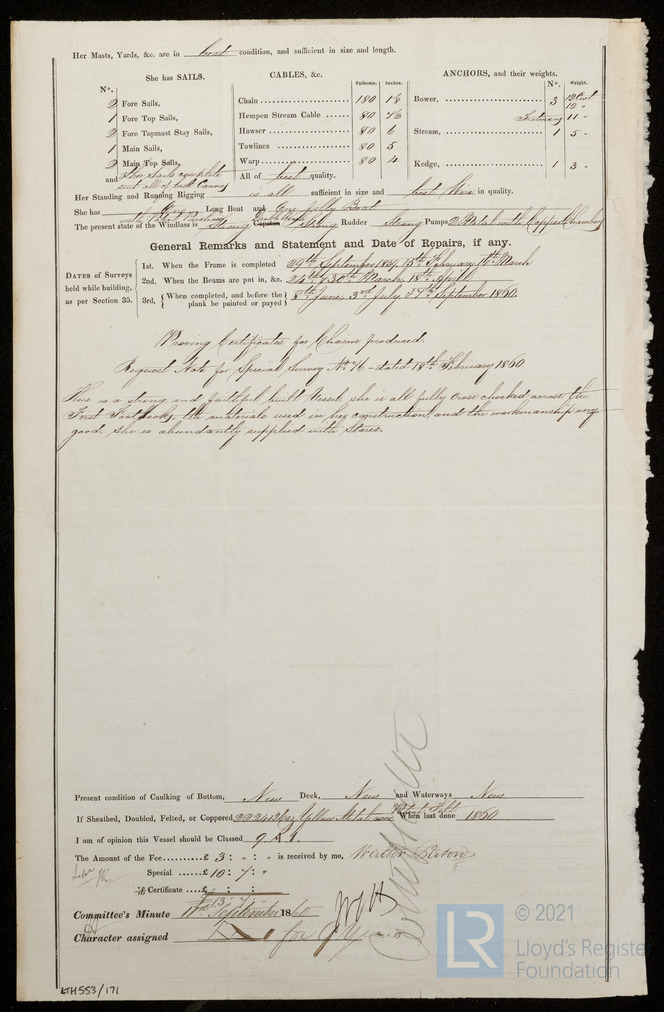 Her Masts, Yards, &c. are in best condition, and sufficient in size and length.
She has SAILS.
CABLES, &c.
ANCHORS, and their weights.
N°.
Fathoms.
Inches.
N°.
Weight.
2 Fore Sails,
1 Fore Top Sails,
2 Fore Topmast Stay Sails,
1 Main Sails,
2 Main Top Sails,
and other Sails complete
suit all of best Canvas
Chain 180
Hempen Stream Cable 80
Hawser 80 6
Towlines 80 5
Warp 80 4
All of best quality.
Bower, 3
12 "
11 "
Stream, 1 5 "
Kedge, 1 3 "
Her Standing and Running Rigging is all sufficient in size and best in quality.
She has One Long Boat and One Jolly Boat
The present state of the Windlass is Strong Capstan Strong Rudder Strong Pumps 2 Metal with Copper Chambers
General Remarks and Statement and Date of Repairs, if any.
DATES of Surveys held while building, as per Section 35.
1st. When the Frame is completed 29th September 1859, 15th February, 16th March
2nd. When the Beams are put in, &c. 24th & 30th March, 18th April
3rd. {When completed, and before the plank be painted or payed} 8th June, 3rd July & 7th September 1860.
Proving Certificates for Chains produced.
Request Note for Special Survey No 76 - dated 18th February 1860
This is a strong and faithful built Vessel, she is all fully cross chocked across the
First Foothooks, the materials used in her construction and the workmanship very
good. She is abundantly supplied with Stores.
Present condition of Caulking of Bottom, New Deck, New and Waterways New
If Sheathed, Doubled, Felted, or Coppered Yellow Metal over Felt When last done 1860
I am of opinion this Vessel should be Classed 9 A 1.
The Amount of the Fee £ 3 : " : " is received by me, Walter Paton
Special £ 10 : 7 : "
Certificate £ : :
£13. 7
Committee's Minute September 1860
Character assigned A 1 for 9 Years
LTH553/171
LR
© 2021
Lloyd's Register
Foundation